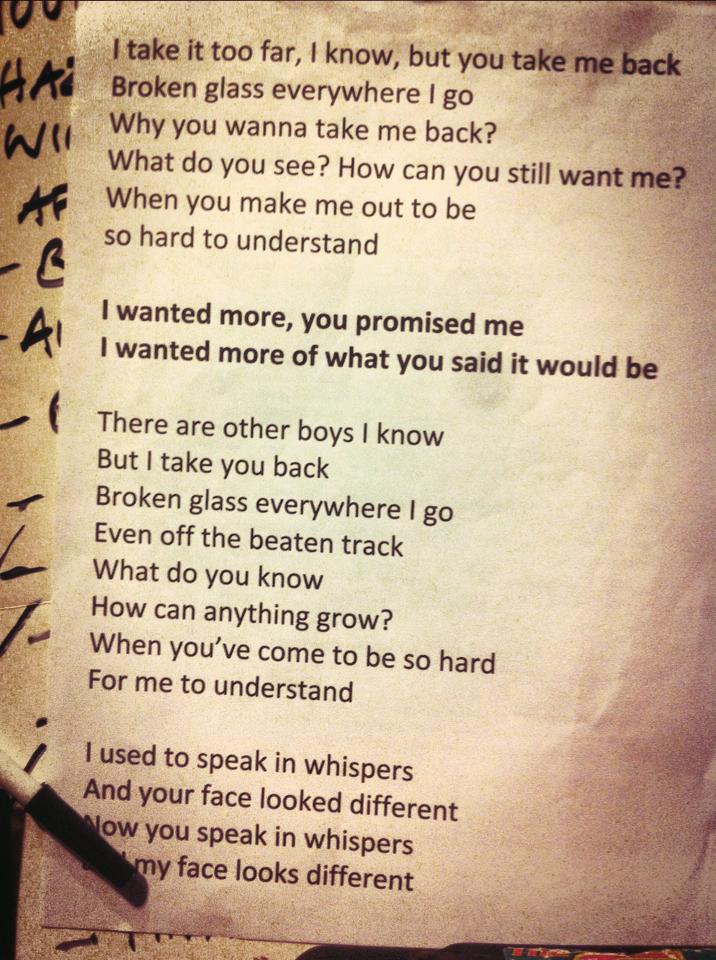 I take it too far, I know, but you take me back
Broken glass everywhere I go
Why you wanna take me back?
What do you see? How can you still want me?
When you make me out to be
so hard to understand
I wanted more, you promised me
I wanted more of what you said it would be
There are other boys I know
But I take you back
Broken glass everywhere I go
Even off the beaten track
What do you know
How can anything grow?
When you've come to be so hard
For me to understand
I used to speak in whispers
And your face looked different
Now you speak in whispers
my face looks different